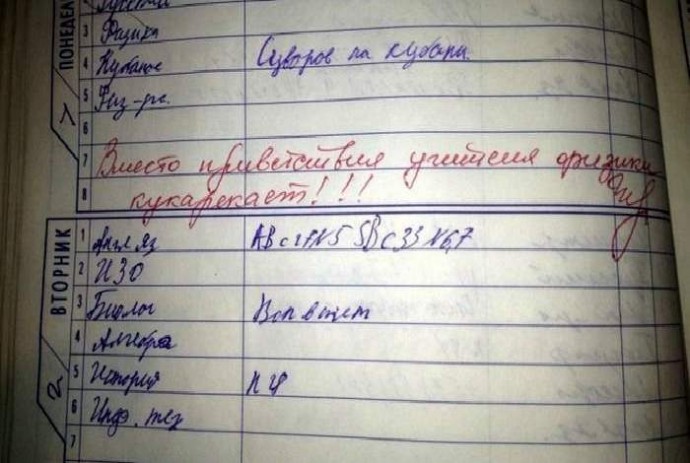 ПОНЕДЕЛ
3 Физика
4 Кубанов Суворов на кубани
5 Физ-ра.
6
7 Вместо приветствия учителя физики
8 кукарекает!!!
ВТОРНИК
1 Англ яз АВ с 27 N5 SB с 33 N6,7
2 ИЗО
3 Биолог
4 Алгебра
5 История п 4
6
7